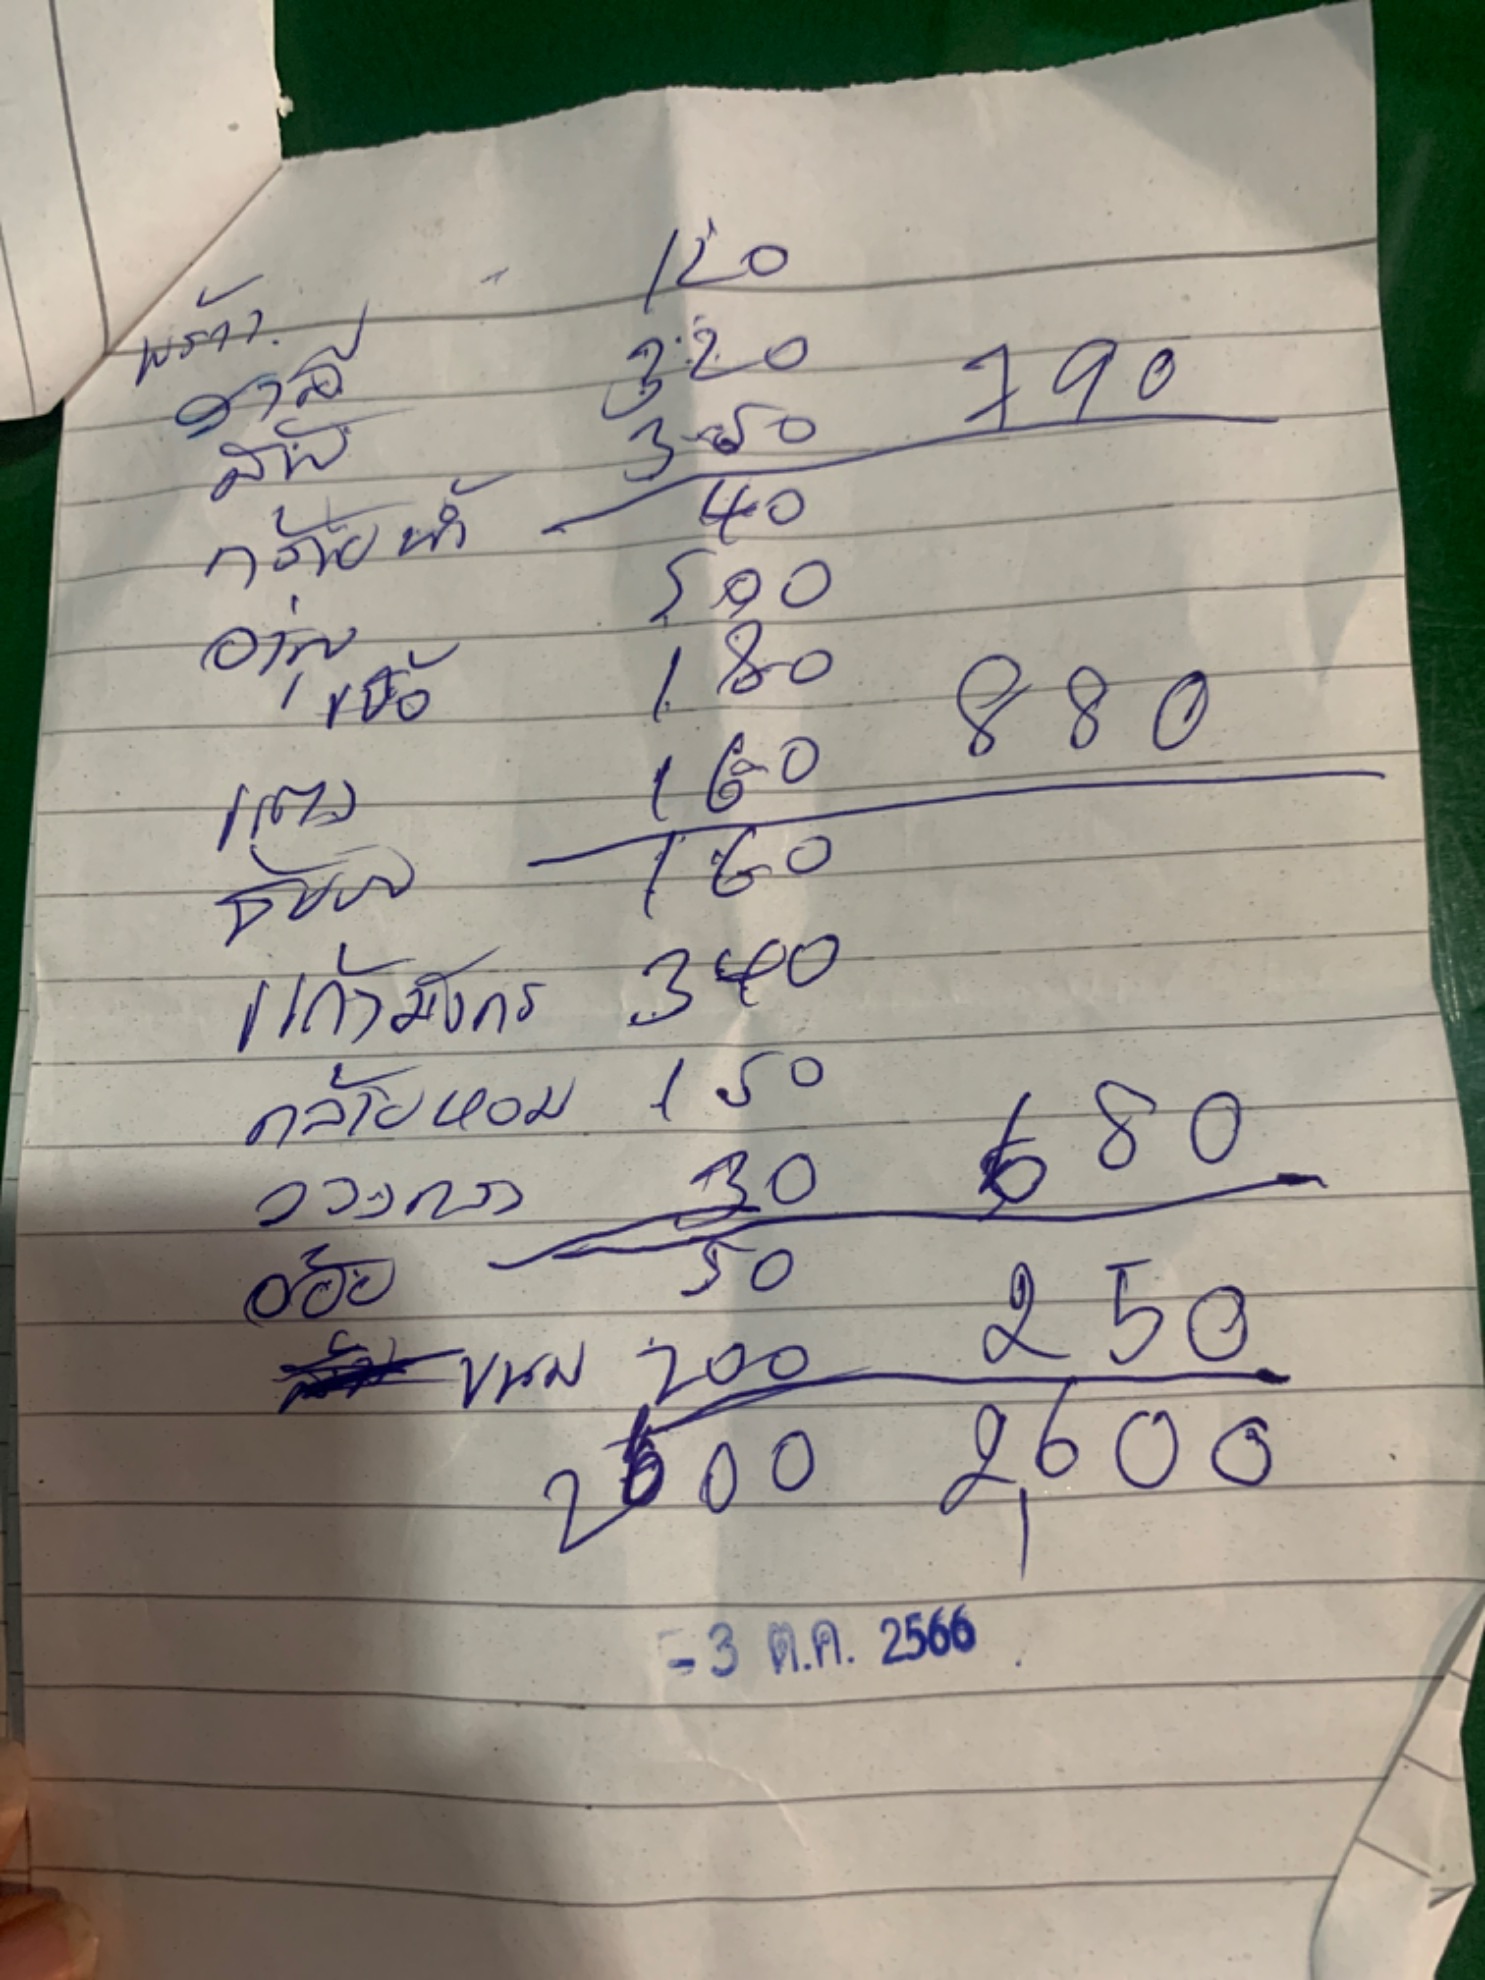 พร้าว 120
สาลี่ 320 790
ส้ม 350
กล้วยน้ำ 40
องุ่น 500
180 880
แตง 160
160
แก้วมังกร 340
กล้วยหอม 150 680
30
อ้อย 50 250
ขนม 200
2600 2600
-3 ต.ค. 2566